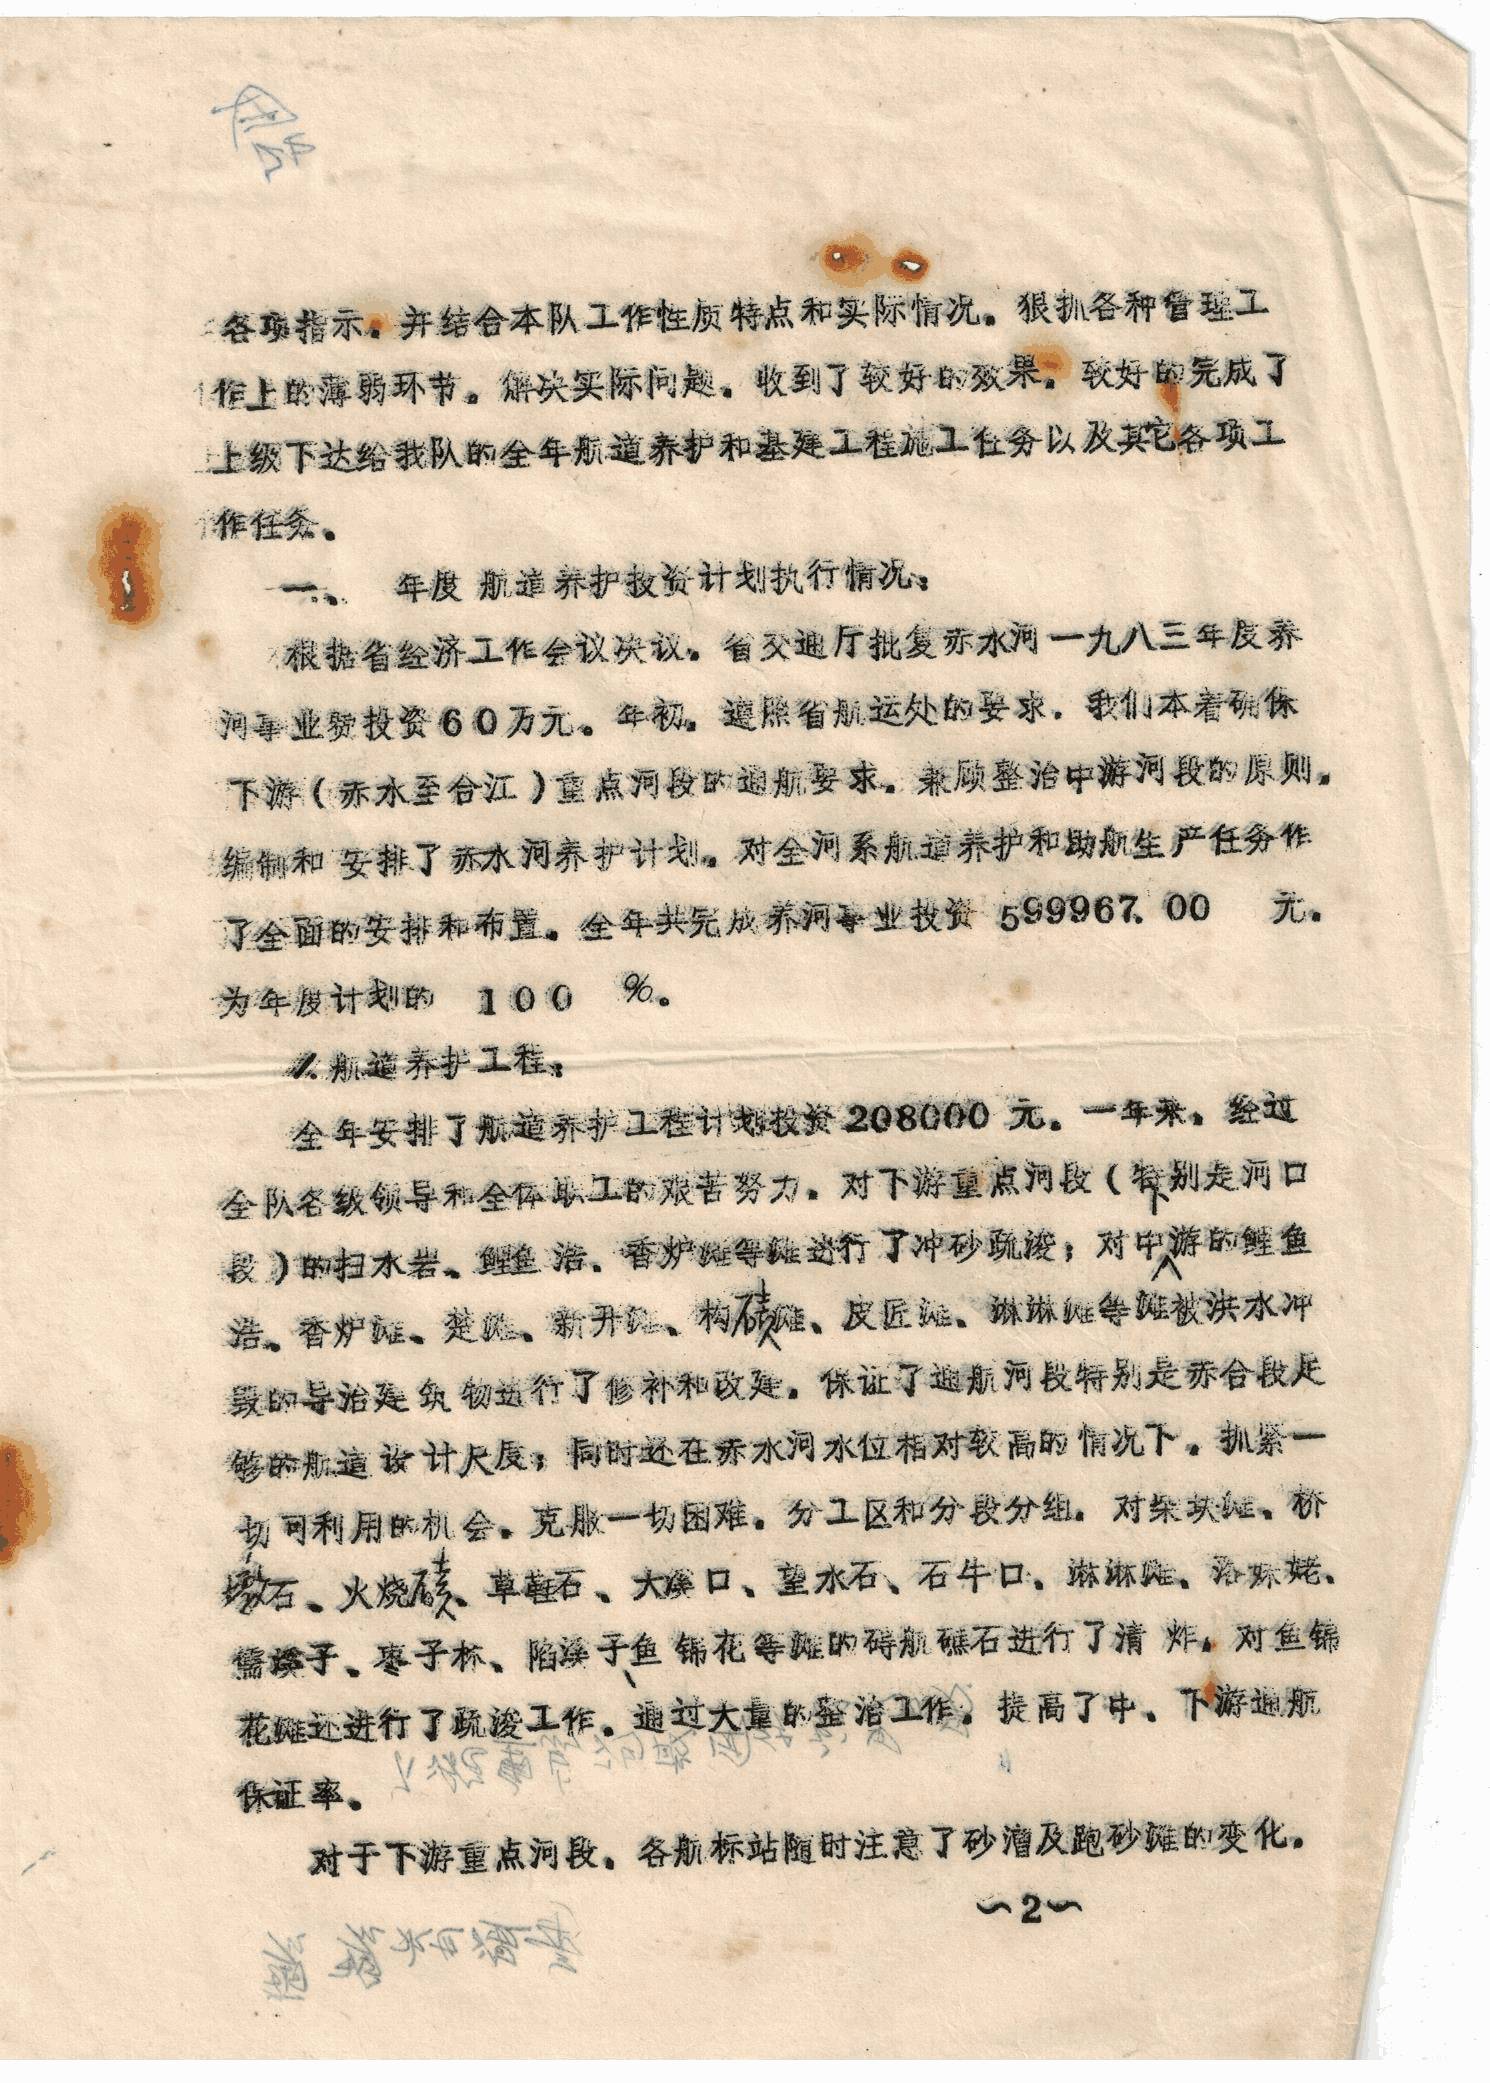 各项指示。并结合本队工作性质特点和实际情况。狠抓各种管理工
作上的薄弱环节。解决实际问题。收到了较好的效果。较好的完成了
上级下达给我队的全年航道养护和基建工程施工任务以及其它各项工
作任务。
一、 年度航道养护投资计划执行情况：
根据省经济工作会议决议。省交通厅批复赤水河一九八三年度养
河事业费投资60万元。年初。遵照省航运处的要求。我们本着确保
下游（赤水至合江）重点河段的通航要求。兼顾整治中游河段的原则。
编制和安排了赤水河养护计划。对全河系航道养护和助航生产任务作
了全面的安排和布置。全年共完成养河事业投资599967.00 元。
为年度计划的 100 %。
1.航道养护工程：
全年安排了航道养护工程计划投资208000元。一年来。经过
全队各级领导和全体职工的艰苦努力。对下游重点河段（特别是河口
段）的扫水岩、鲤鱼浩、香炉滩等滩进行了冲砂疏浚；对中下游的鲤鱼
浩、香炉滩、楚滩、新开滩、构碛滩、皮匠滩、淋淋滩等滩被洪水冲
毁的导治建筑物进行了修补和改建。保证了通航河段特别是赤合段足
够的航道设计尺度；同时还在赤水河水位相对较高的情况下。抓紧一
切可利用的机会。克服一切困难。分工区和分段分组。对柴块滩、桥
墩石、火烧碛、草鞋石、大溪口、望水石、石牛口、淋淋滩、洛妹姥、
儒溪子、枣子林、陷溪子、鱼锦花等滩的碍航礁石进行了清炸。对鱼锦
花滩还进行了疏浚工作。通过大量的整治工作。提高了中、下游通航
保证率。
对于下游重点河段。各航标站随时注意了砂漕及跑砂滩的变化。
~2~